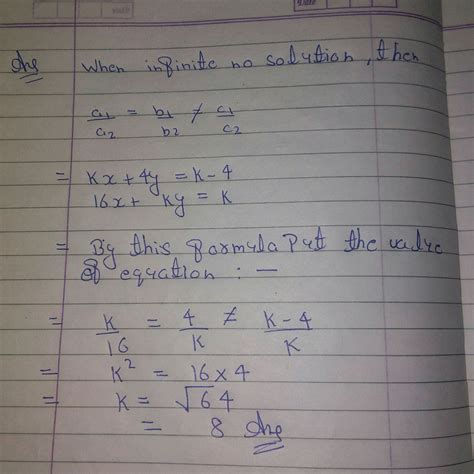 Ans When infinite no solution, then
a1/a2 = b1/b2 ≠ c1/c2
= Kx + 4y = K - 4
16x + Ky = K
= By this formula Put the value
of equation : —
= K/16 = 4/K ≠ K-4/K
= K² = 16 x 4
= K = √64
= 8 Ans